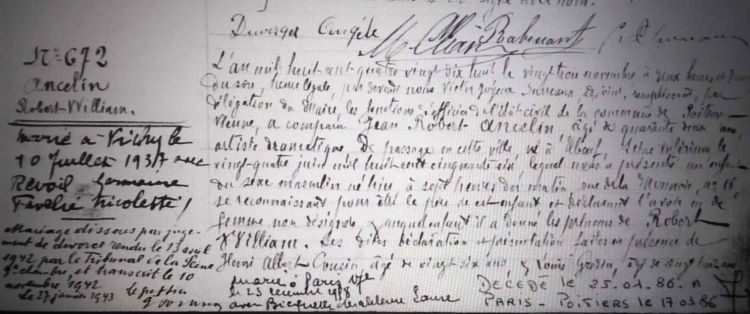 Duverger Angèle
N° 672
Ancelin
Robert William.
marié à Vichy le
10 Juillet 1937 avec
Revoil Germaine
Nicolette
Mariage dissous par juge-
ment de divorce rendu le 13 avril
1942 par le Tribunal de la Seine
chambre, et transcrit le 10
novembre 1942
le 27 janvier 1943
L'an mil huit cent quatre vingt dix huit le vingt trois novembre à deux heures et demie
du soir, heure légale, par devant nous Victor Joyeux Surreaux, remplissant, par
délégation du Maire, les fonctions d'officier de l'état civil de la commune de Poitiers
Vienne, a comparu Jean Robert Ancelin âgé de quarante deux ans,
artiste dramatique de passage en cette ville né à Seine inférieure le
vingt quatre juin mil huit cent cinquante six, lequel nous a présenté un enfant
du sexe masculin né hier à sept heures du matin, rue de la 16
se reconnaissant pour être le père de cet enfant et déclarant l'avoir eu de
femme non désignée auquel enfant il a donné les prénoms de Robert
William. Les dites déclaration et présentation faites en présence de
Henri Albert Cousin, âgé de vingt six ans & Louis
marié à Paris
le 23 décembre
avec
DÉCÉDÉ le 25.01.86. A
PARIS - POITIERS le 17.03.86